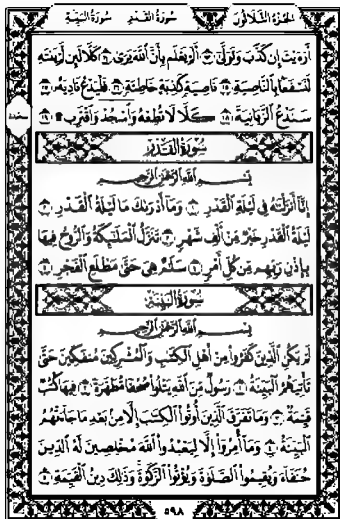 الجزء الثلاثون سورة القدر سورة البينة
أرءيت إن كذب وتولى ١٣ ألم يعلم بأن الله يرى ١٤ كلا لئن لم ينته
لنسفعا بالناصية ١٥ ناصية كذبة خاطئة ١٦ فليدع ناديه ١٧
سندع الزبانية ١٨ كلا لا تطعه واسجد واقترب ١٩
سجدة
سورة القدر
بسم الله الرحمن الرحيم
إنا أنزلنه في ليلة القدر ١ وما أدرىك ما ليلة القدر ٢
ليلة القدر خير من ألف شهر ٣ تنزل الملئكة والروح فيها
بإذن ربهم من كل أمر ٤ سلم هي حتى مطلع الفجر ٥
سورة البينة
بسم الله الرحمن الرحيم
لم يكن الذين كفروا من أهل الكتب والمشركين منفكين حتى
تأتيهم البينة ١ رسول من الله يتلوا صحفا مطهرة ٢ فيها كتب
قيمة ٣ وما تفرق الذين أوتوا الكتب إلا من بعد ما جاءتهم
البينة ٤ وما أمروا إلا ليعبدوا الله مخلصين له الدين
حنفاء ويقيموا الصلوة ويؤتوا الزكوة وذلك دين القيمة ٥
٥٩٨